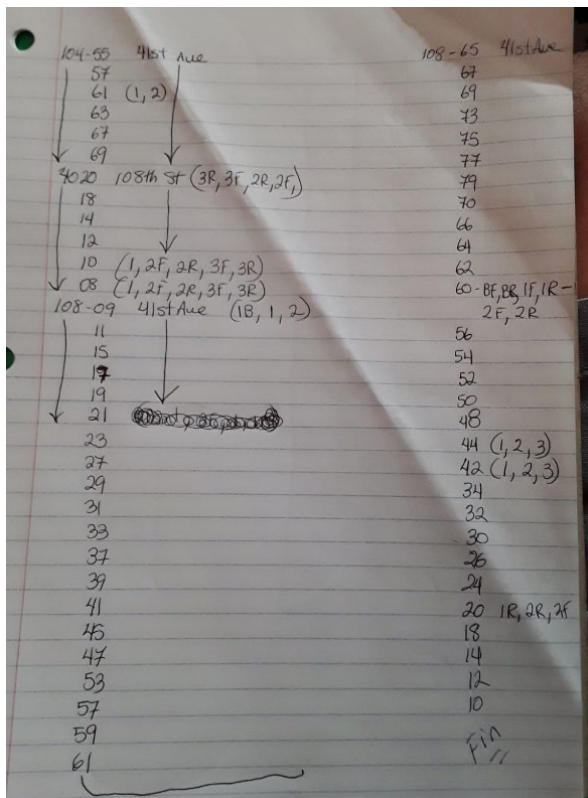 104-55 41st Ave
57
61 (1,2)
63
67
69
4020 108th St (3R, 3F, 2R, 2F,)
18
14
12
10 (1, 2F, 2R, 3F, 3R)
08 (1, 2F, 2R, 3F, 3R)
108-09 41st Ave (1B, 1, 2)
11
15
17
19
21
23
27
29
31
33
37
39
41
45
47
53
57
59
61
108-65 41st Ave
67
69
73
75
77
79
70
66
64
62
60-BF, BR, 1F, 1R-
2F, 2R
56
54
52
50
48
44 (1, 2, 3)
42 (1, 2, 3)
34
32
30
26
24
20 1R, 2R, 2F
18
14
12
10
Fin